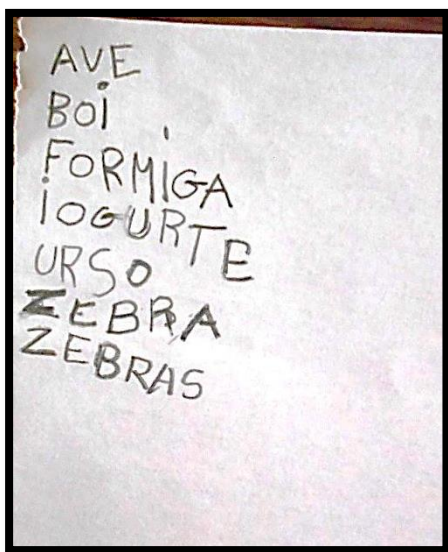 AVE
BOi
FORMiGA
iOGURTE
URSO
ZEBRA
ZEBRAS